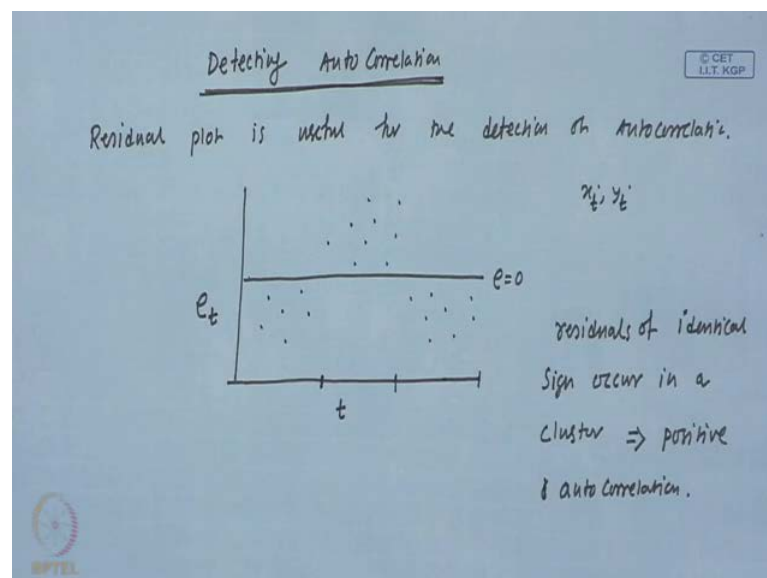 Detecting Auto Correlation
© CET
I.I.T. KGP
Residual plot is useful for the detection of Autocorrelatic.
xt, yt
e=0
et
t
residuals of identical
Sign occur in a
cluster ⇒ positive
autocorrelation.
NPTEL